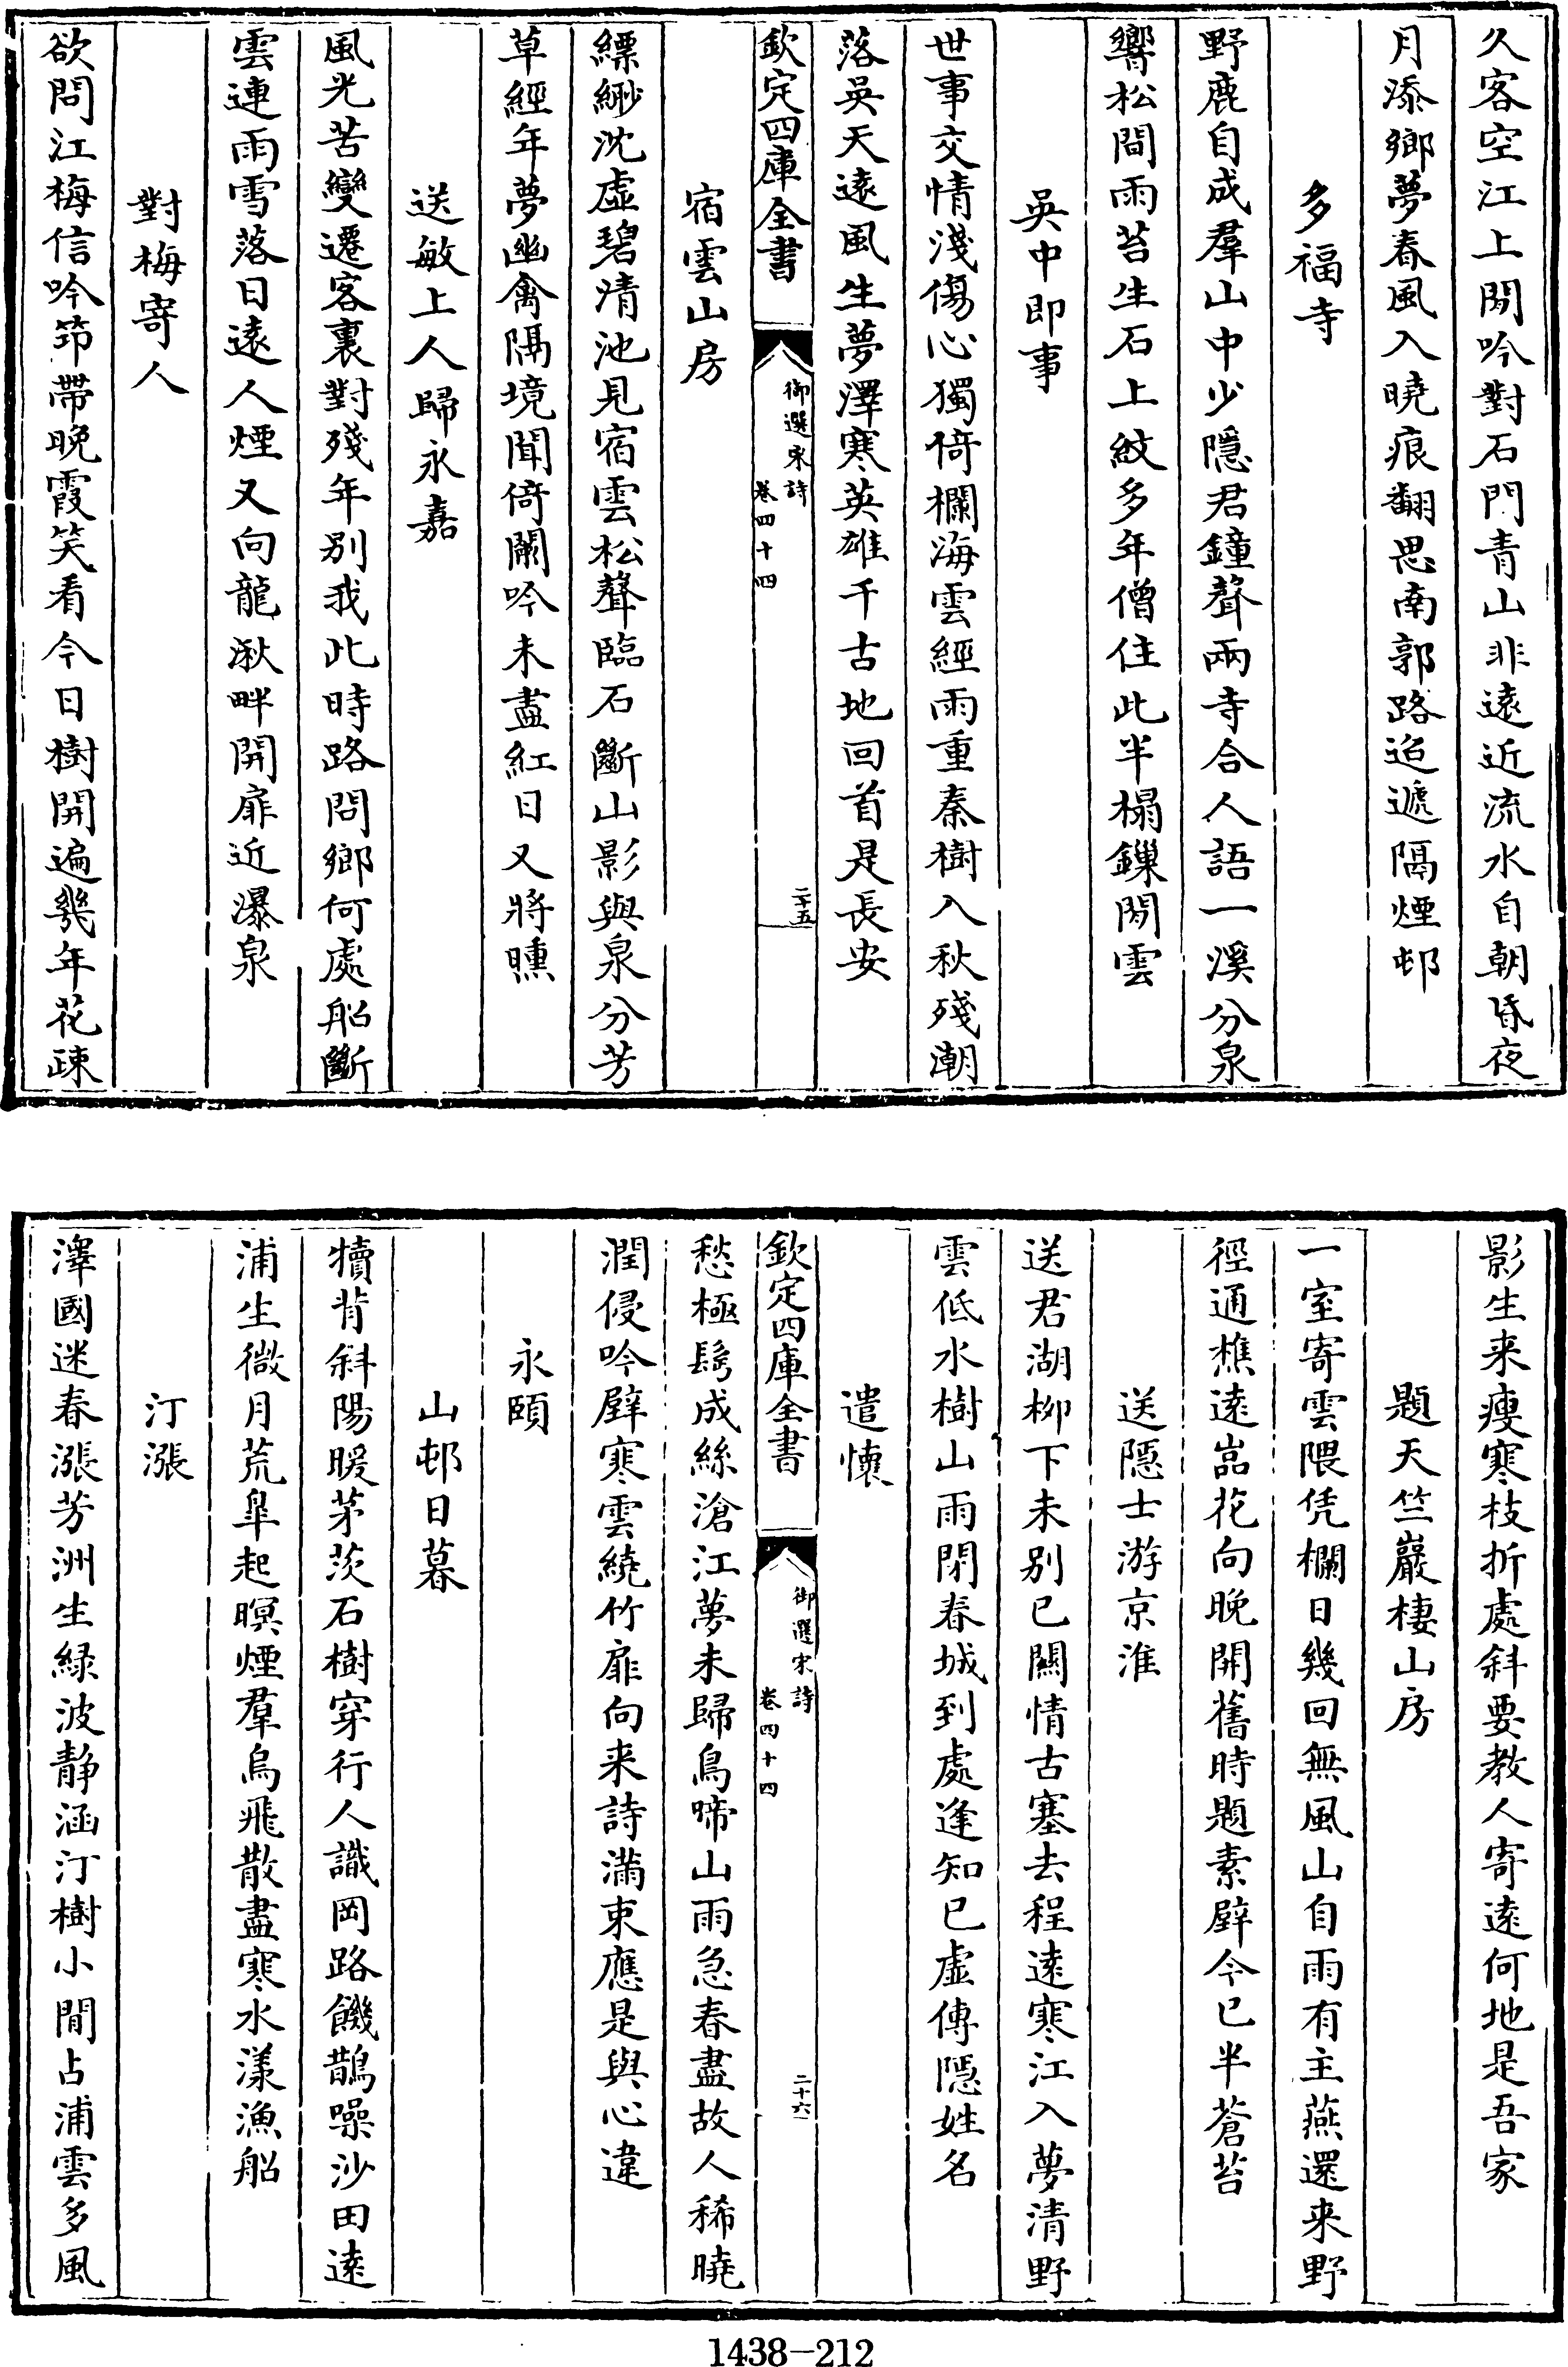 久客空江上閒吟對石門青山非遠近流水自朝昏夜
月添鄉夢春風入曉痕翻思南郭路迢遞隔煙邨
多福寺
野鹿自成羣山中少隱君鐘聲兩寺合人語一溪分泉
響松間雨苔生石上紋多年僧住此半榻鏁閒雲
吳中即事
世事交情淺傷心獨倚欄海雲經雨重秦樹入秋殘潮
落吳天遠風生夢澤寒英雄千古地回首是長安
欽定四庫全書
御選宋詩
卷四十四
二十五
宿雲山房
縹緲沈虛碧清池見宿雲松聲臨石斷山影與泉分芳
草經年夢幽禽隔境聞倚闌吟未盡紅日又將曛
送敏上人歸永嘉
風光苦變遷客裏對殘年別我此時路問鄉何處船斷
雲連雨雪落日遠人煙又向龍湫畔開扉近瀑泉
對梅寄人
欲問江梅信吟笻帶晚霞笑看今日樹開遍幾年花疎
影生来瘦寒枝折處斜要教人寄遠何地是吾家
題天竺巖棲山房
一室寄雲隈凭欄日幾回無風山自雨有主燕還来野
徑通樵遠嵓花向晚開舊時題素壁今已半蒼苔
送隱士游京淮
送君湖柳下未別已關情古塞去程遠寒江入夢清野
雲低水樹山雨閉春城到處逢知已虛傳隱姓名
遣懷
欽定四庫全書
御選宋詩
卷四十四
二十六
愁極髩成絲滄江夢未歸鳥啼山雨急春盡故人稀曉
潤侵吟壁寒雲繞竹扉向来詩滿束應是與心違
永頤
山邨日暮
犢背斜陽暖茅茨石樹穿行人識岡路饑鵲噪沙田遠
浦生微月荒臯起暝煙羣烏飛散盡寒水漾漁船
汀漲
澤國迷春漲芳洲生緑波静涵汀樹小閒占浦雲多風
1438-212